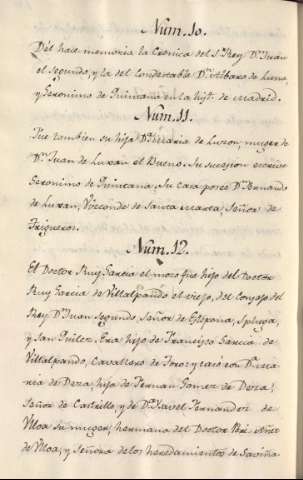 Núm. 10.
Dél hace memoria la Crónica del S.r Rey D.n Juan
el segundo, y la del Condestable D.n Alvaro de Luna,
y Geronimo de Quintana en la hist. de Madrid.
Núm. 11.
Fue tambien su hija D.a Maria de Luzon, muger de
D.n Juan de Luxan el Bueno. Su sucesion escrive
Geronimo de Quintana. Su casa posee D.n Fernando
de Luxan, Vizconde de Santa Marta, Señor de
Frigueros.
Núm. 12.
El Doctor Ruy Garcia el mozo fue hijo del Doctor
Ruy Garcia de Villalpando el viejo, del Consejo del
Rey D.n Juan Segundo, Señor de
y San Era hijo de Francisco Garcia de
Villalpando, Cavallero de Toro; y casó con D.a Ma-
ria de Deza, hija de Fernan Gomez de Deza,
Señor de Castrillo, y de D.a Isavel Fernandez de
Ulloa su muger, hermana del Doctor
de Ulloa, y Señora de los heredamientos de